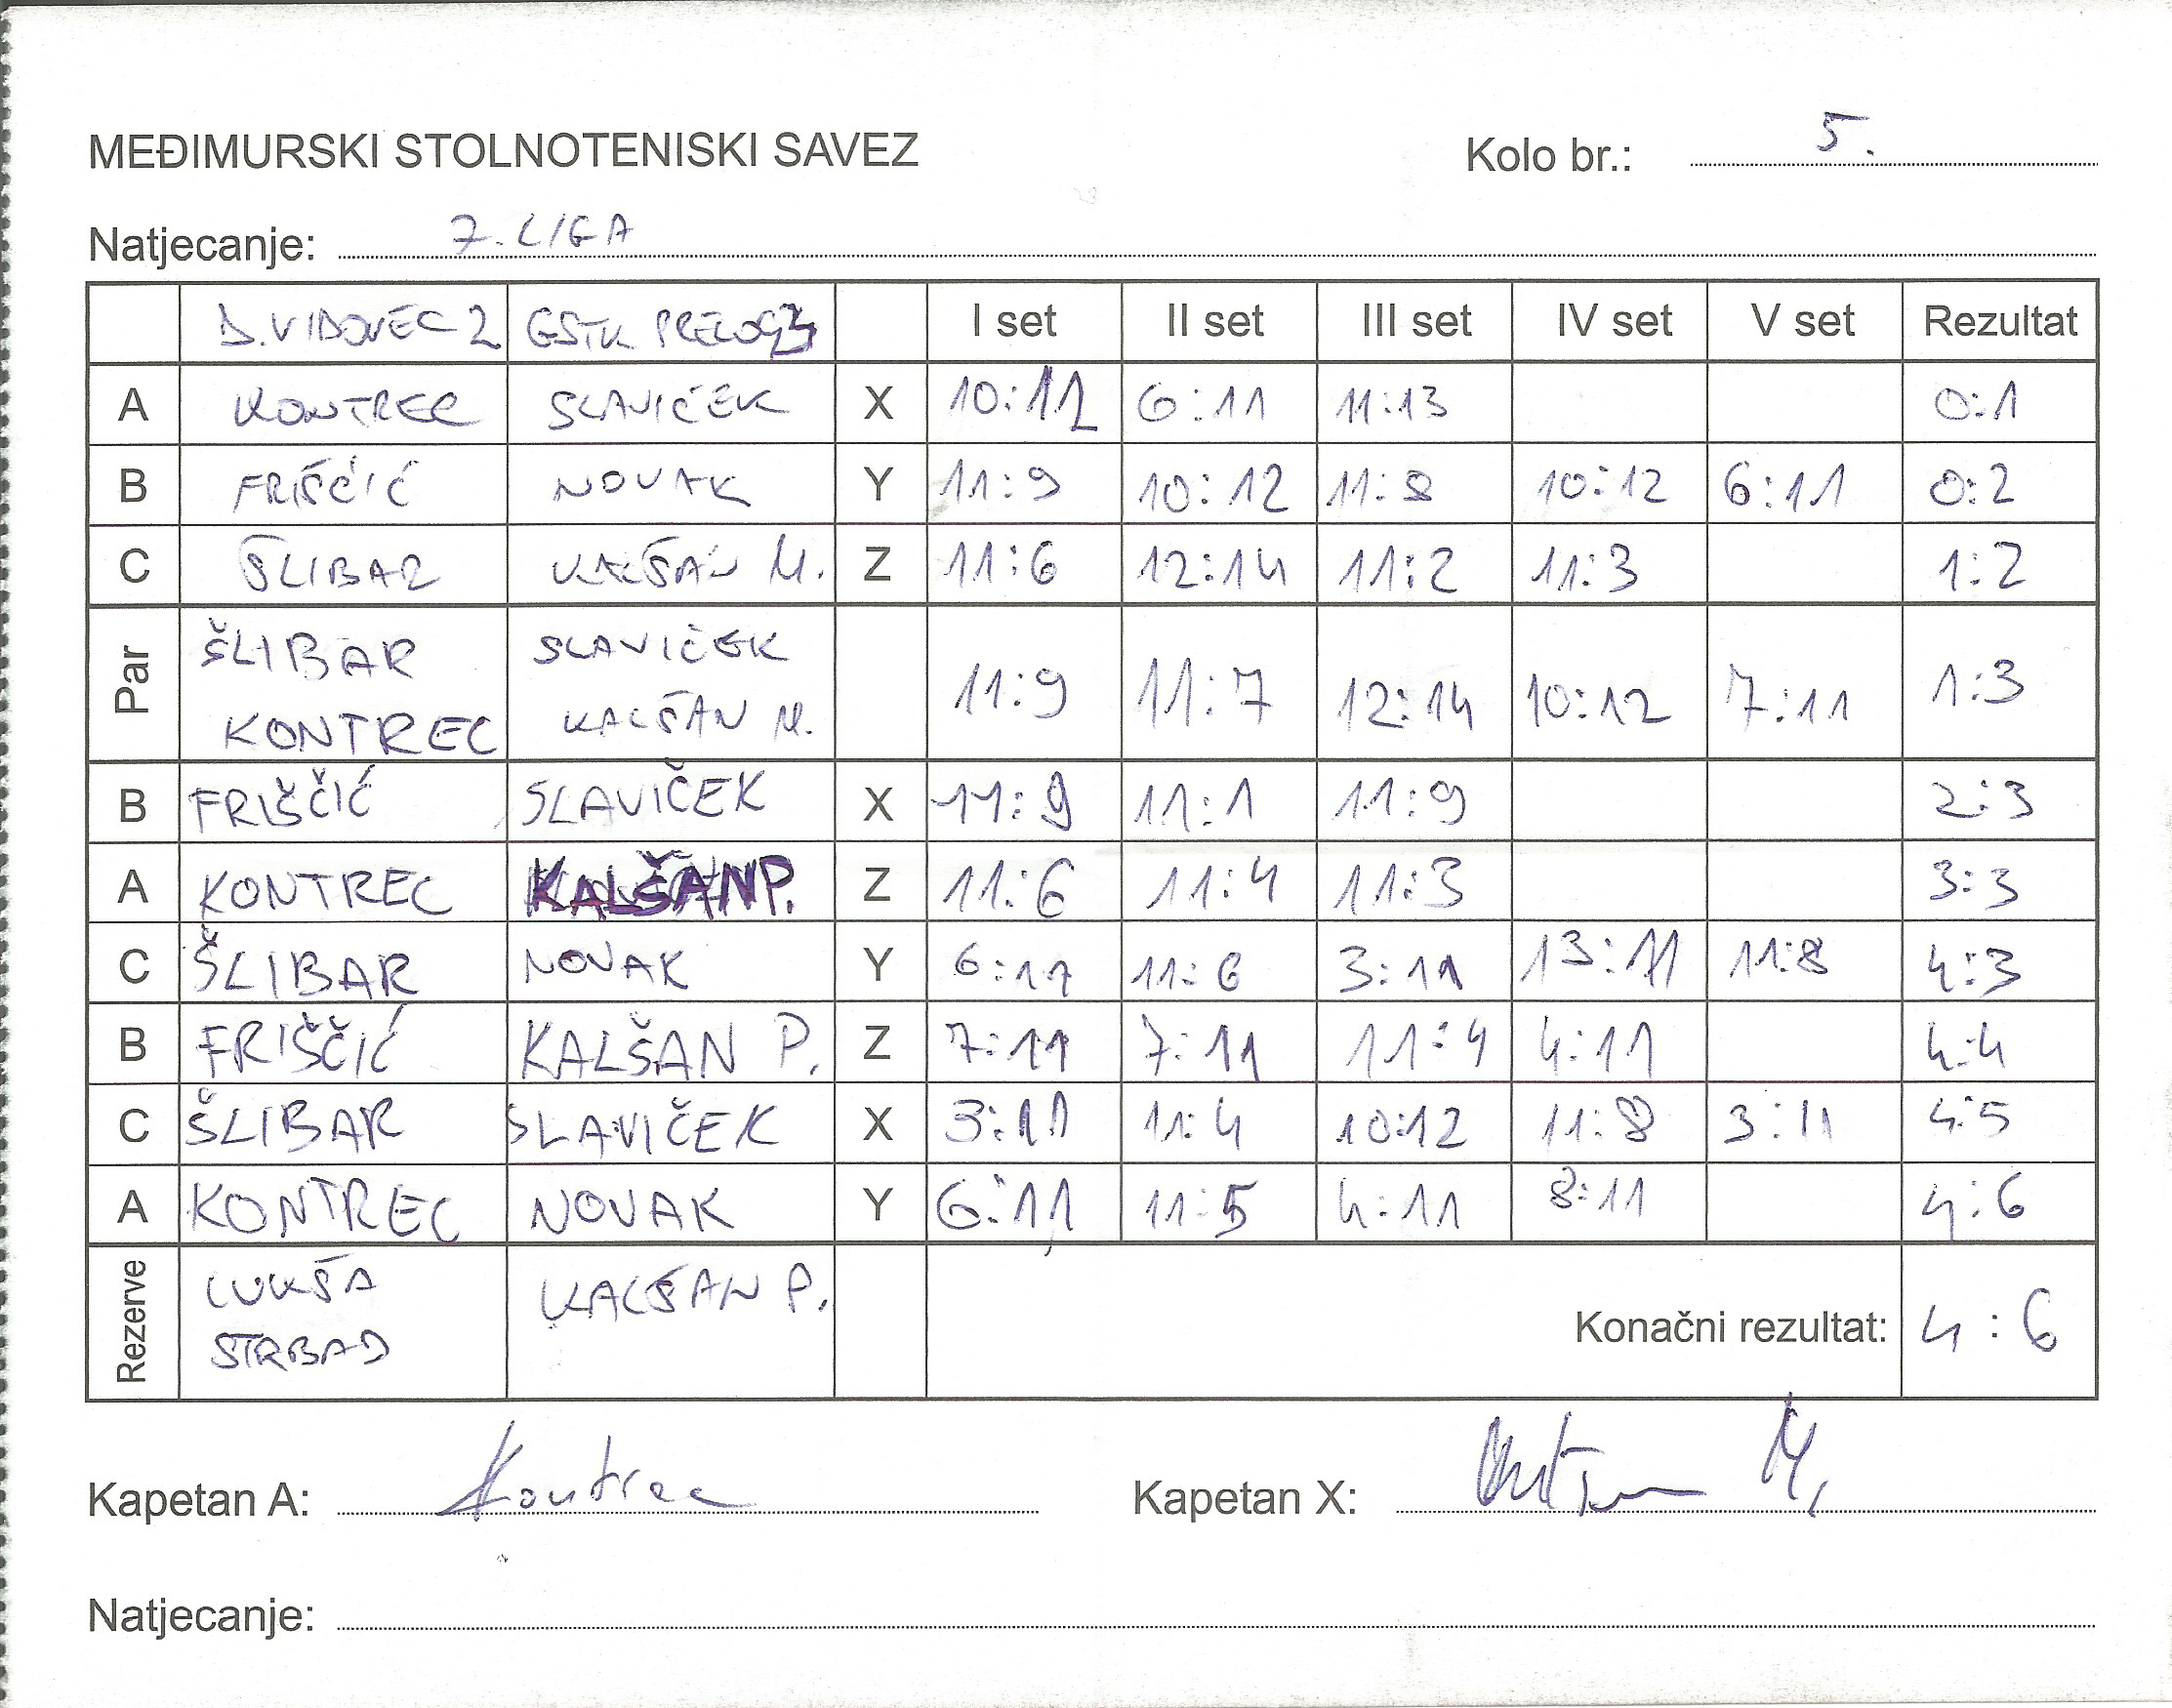 MEĐIMURSKI STOLNOTENISKI SAVEZ Kolo br.: 5.
Natjecanje: 7. LIGA
D. VIDOVEC 2 GSTK PRELOG 3 I set II set III set IV set V set Rezultat
A KONTREC SLAVIČEK X 10:12 6:11 11:13 0:1
B FRIŠČIĆ NOVAK Y 11:9 10:12 11:8 10:12 6:11 0:2
C ŠLIBAR KALŠAN M. Z 11:6 12:14 11:2 11:3 1:2
Par ŠLIBAR SLAVIČEK 11:9 11:7 12:14 10:12 7:11 1:3
KONTREC KALŠAN M.
B FRIŠČIĆ SLAVIČEK X 11:9 11:1 11:9 2:3
A KONTREC KALŠAN P. Z 11:6 11:4 11:3 3:3
C ŠLIBAR NOVAK Y 6:11 11:6 3:11 13:11 11:8 4:3
B FRIŠČIĆ KALŠAN P. Z 7:11 7:11 11:4 4:11 4:4
C ŠLIBAR SLAVIČEK X 3:11 11:4 10:12 11:8 3:11 4:5
A KONTREC NOVAK Y 6:11 11:5 4:11 8:11 4:6
Rezerve LUKŠA KALŠAN P. Konačni rezultat: 4:6
STRBAD
Kapetan A: Kontrec Kapetan X: M.
Natjecanje: